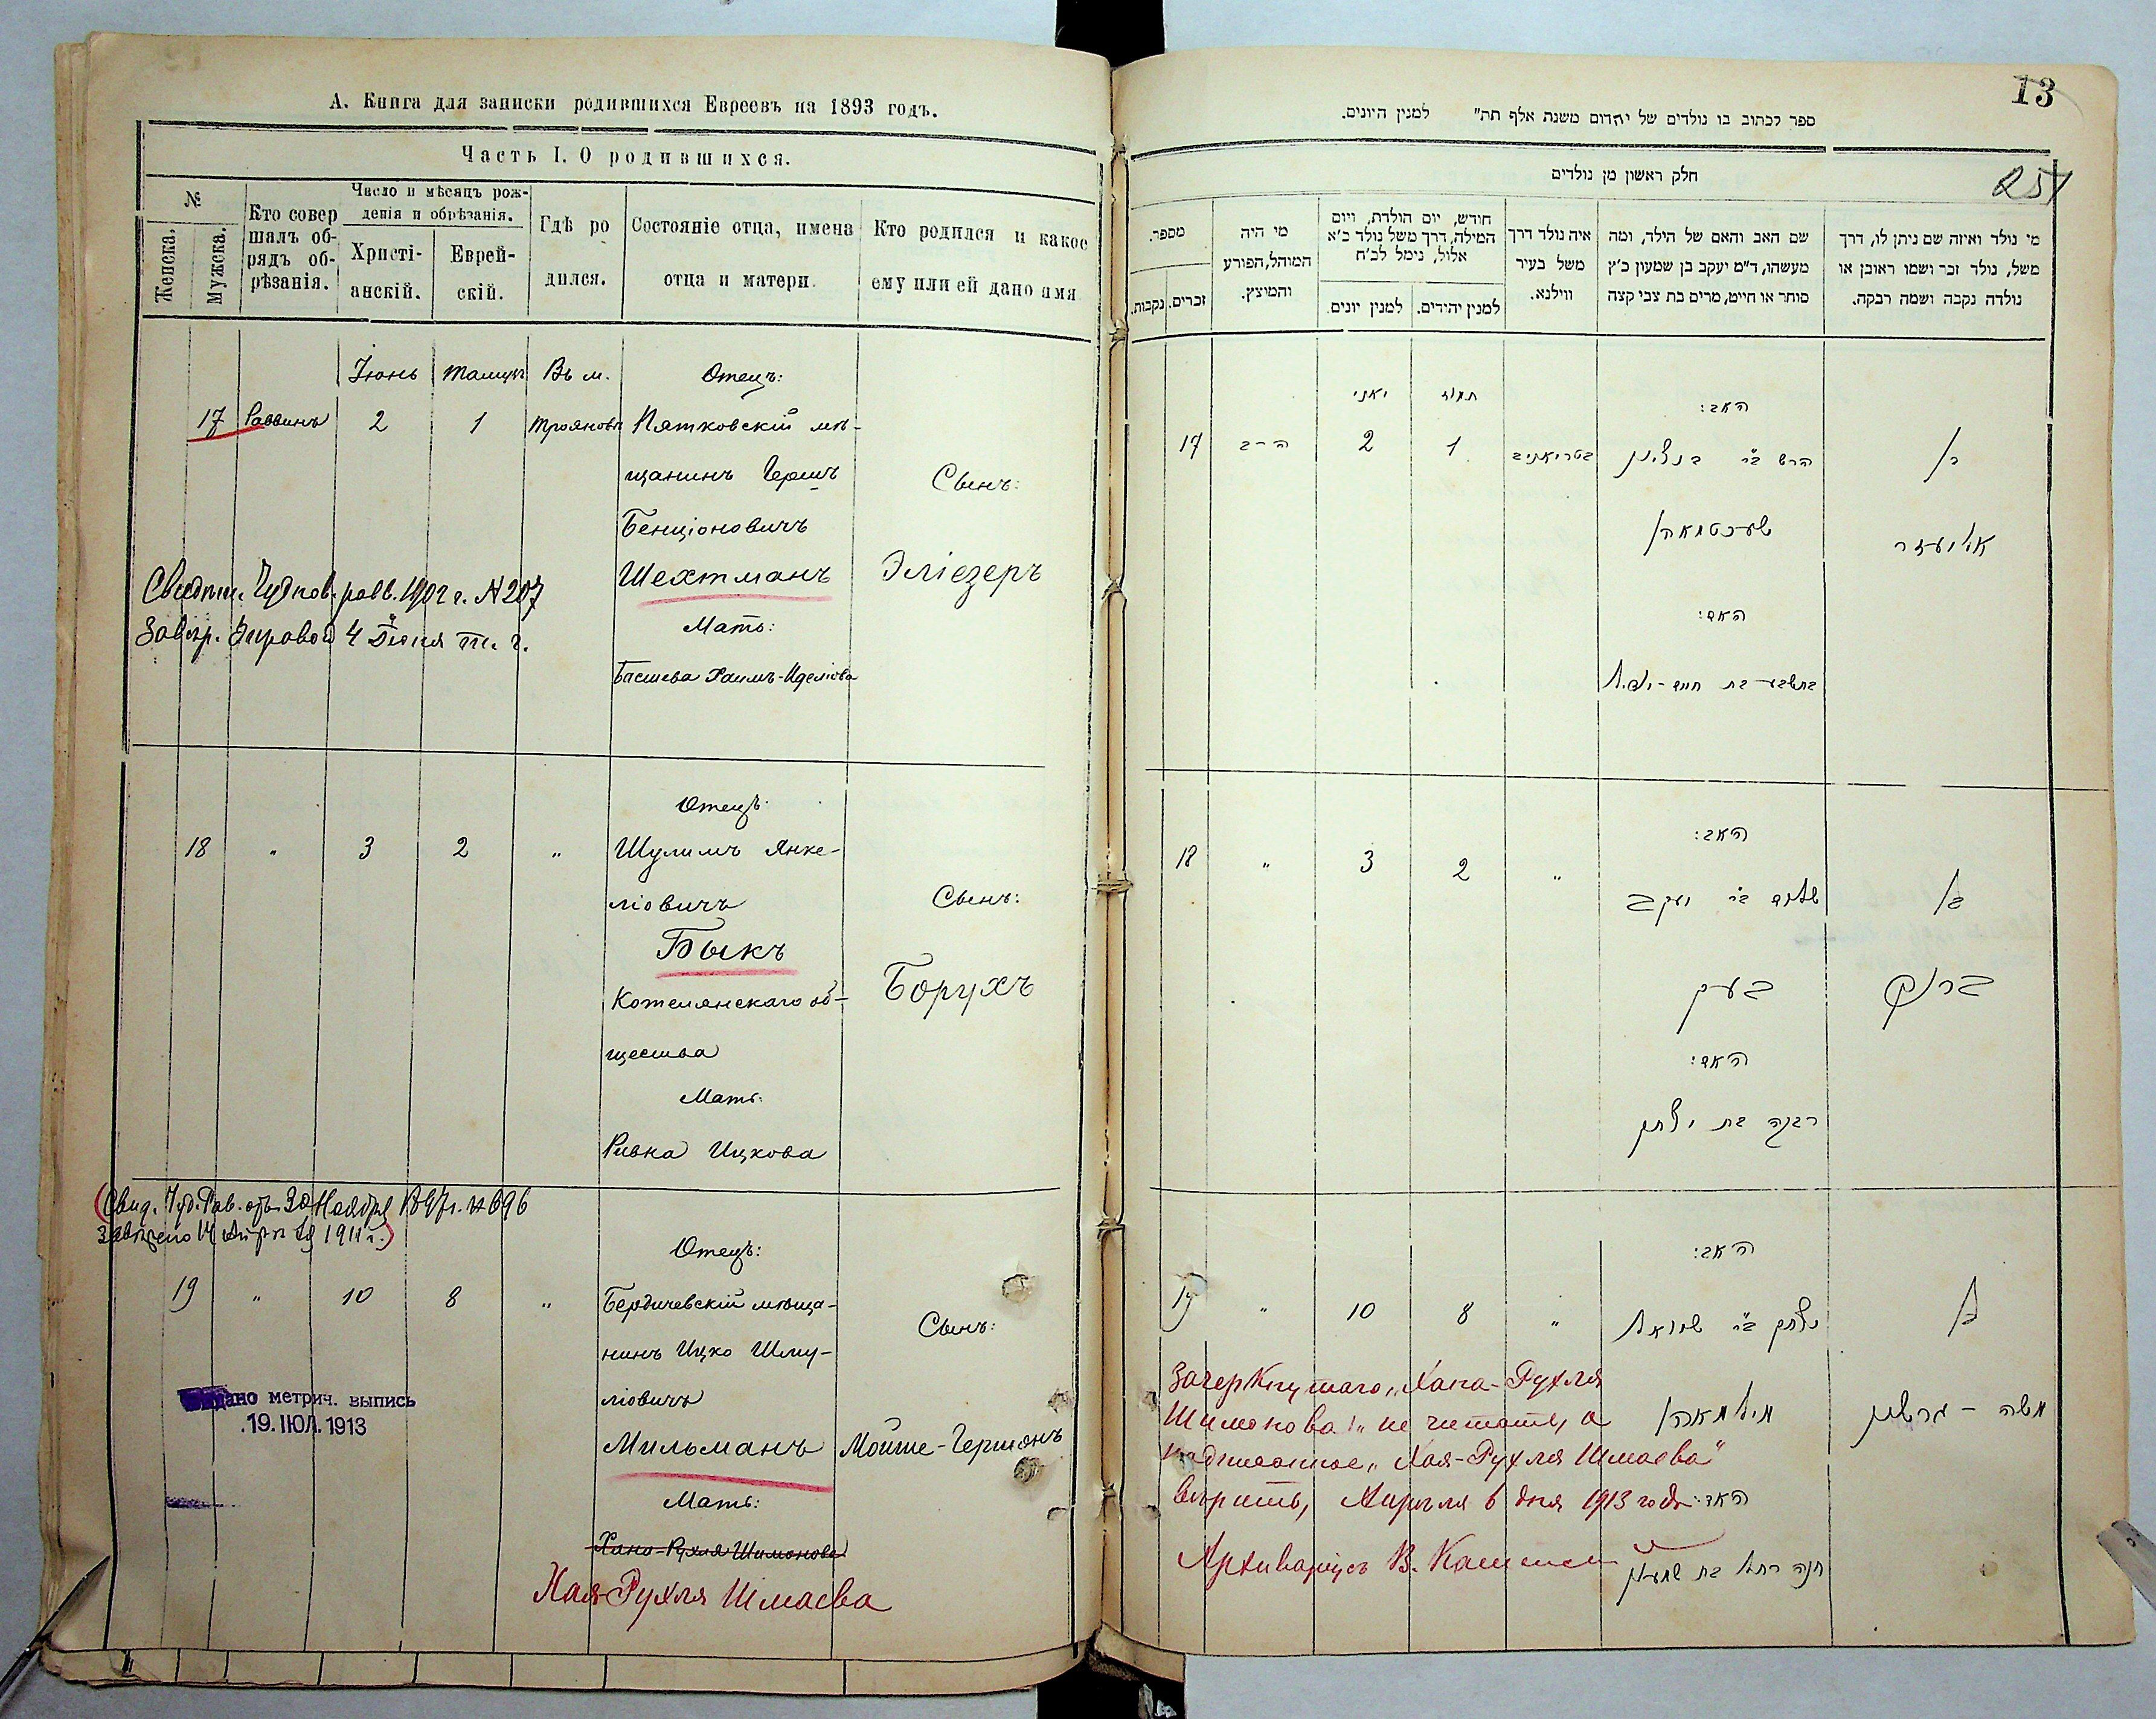 А. Книга для записки родившихся Евреевъ на 1893 годъ.
Часть I. О родившихся.
№
Женска.
Мужска.
Кто совер
шалъ об-
рядъ об-
рѣзанія.
Число и мѣсяцъ рож-
денія и обрѣзанія.
Христі-
анскій.
Еврей-
скій.
Гдѣ ро
дился.
Состояніе отца, имена
отца и матери.
Кто родился и какое
ему или ей дано имя
Іюнь
Въ м.
Отецъ:
17 Раввинъ 2 1 Трояновѣ Пятковскій мѣ-
щанинъ Гершъ
Бенціоновичъ
Шехтманъ
Мать:
Басшева Хаимъ-Иделіова
Сынъ:
Эліезеръ
Чуднов. равв. 1902 г. № 207
4 Іюня т. г.
18 " 3 2 "
Отецъ
Шулимъ Янке-
ліовичъ
Быкъ
Котелянскаго об-
щества
Мать:
Ривка Ицкова
Сынъ:
Борухъ
(Свид. Чуд. Рав. отъ 30 Ноября 1897 г. № 696
1911 г.)
19 " 10 8 "
Отецъ:
Бердичевскій мѣща-
нинъ Ицко Шму-
ліовичъ
Мильманъ
Мать:
Хана-Рухля Шимонова
Хая-Рухля Шмаева
Сынъ:
Мойше-Гершонъ
дано метрич. выпись
.19. ІЮЛ. 1913
13
251
ספר לכתוב בו נולדים של יהדום משנת אלף תת" למנין היונים.
חלק ראשון מן נולדים
מספר.
זכרים.
נקבות.
מי היה
המוהל, הפורע
והמוצץ.
חודש, יום הולדת, ויום
המילה, דרך משל נולד כ'א
אלול, נימל לכ'ח
למנין יונים
למנין יהידים.
איה נולד דרך
משל בעיר
ווילנא.
שם האב והאם של הילד, ומה
מעשהו, ד"מ יעקב בן שמעון כ'ץ
סוחר או חייט, מרים בת צבי קצה
מי נולד ואיזה שם ניתן לו, דרך
משל, נולד זכר ושמו ראובן או
נולדה נקבה ושמה רבקה.
יאני
תמוז
האב:
17 הרב 2 1 בטריאניב
הרש ב"ר בנציון
שעכטמאן
האם:
בתשבע בת חיים-יודל
בן
אליעזר
18 " 3 2 "
האב:
שלום ב"ר יעקב
בעיק
האם:
רבקה בת יצחק
בן
ברוך
19 " 10 8 "
האב:
יצחק ב"ר שמואל
מילמאן
האם:
חנה רחל בת שמעון
בן
משה - גרשון
Зачеркнутаго „Хана-Рухля
Шимонова" не читать, а
надписанное „Хая-Рухля Шмаева"
вѣрить, Апрѣля 6 дня 1913 года
Архиваріусъ В.